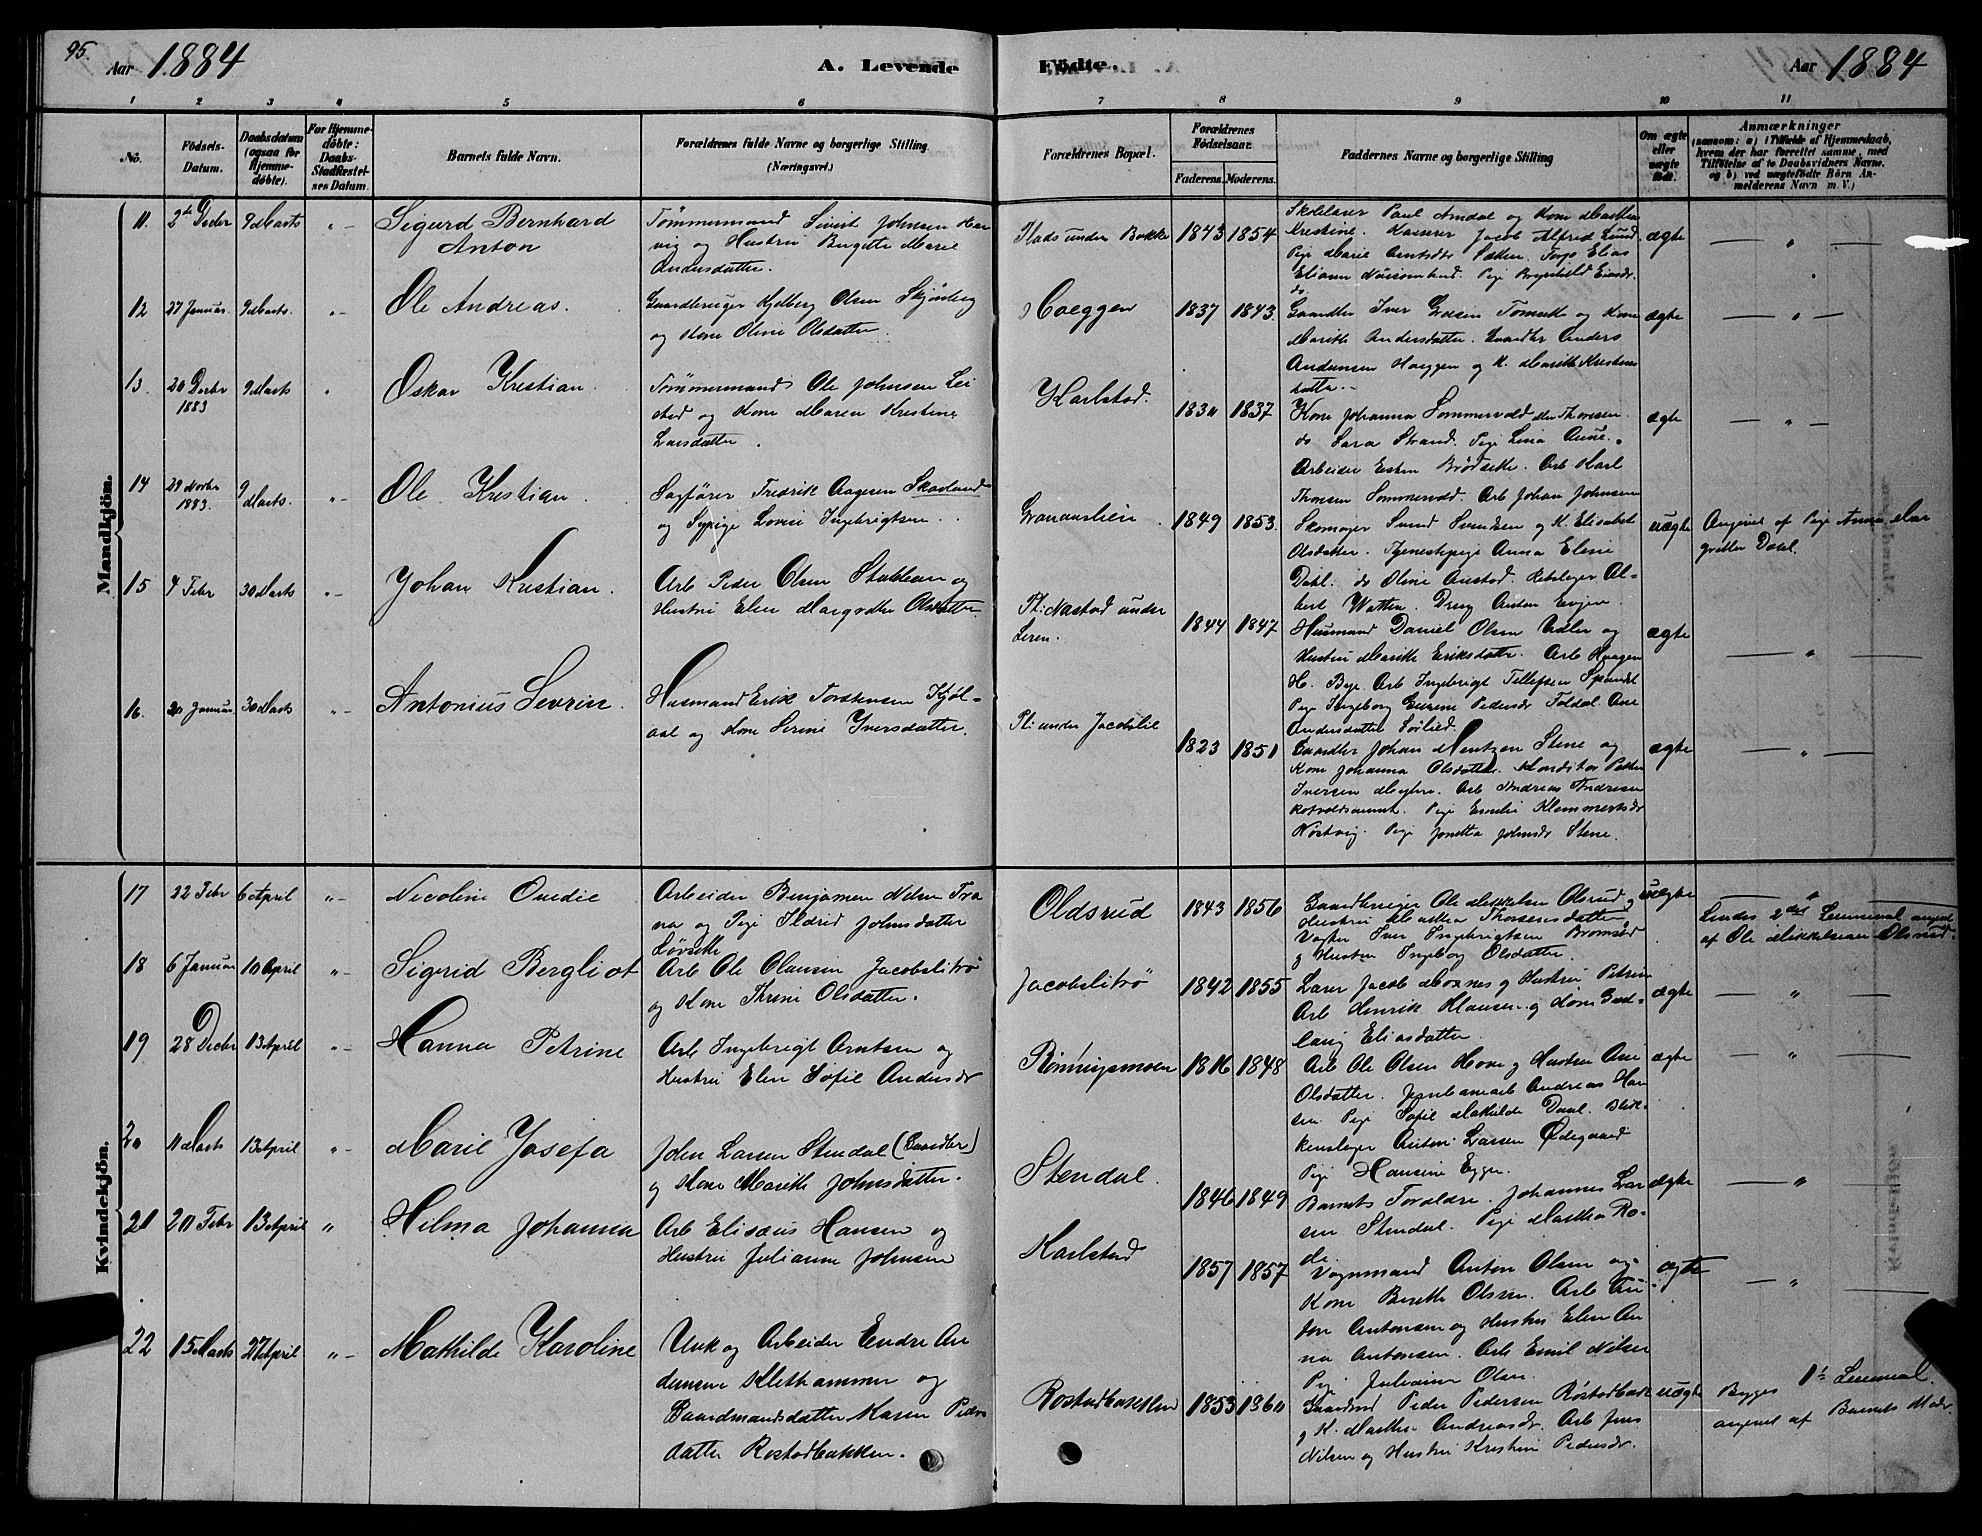 95.
Aar 1884
A. Levende
Födte.
Aar 1884
1 2 3 4 5 6 7 8 9 10 11
No.
Födsels-
Datum.
Daabsdatum
(ogsaa for
Hjemme-
döbte).
For Hjemme-
döbte:
Daabs-
Stadfæstel-
ses Datum.
Barnets fulde Navn.
Forældrenes fulde Navne og borgerlige Stilling
(Næringsvei.)
Forældrenes Bopæl.
Forældrenes
Födselsaar.
Faderens. Moderens.
Faddernes Navne og borgerlige Stilling
Om ægte
eller
uægte
födt.
Anmærkninger
(saasom: a) i Tilfælde af Hjemmedaab,
hvem der har forrettet samme, med
Tilföielse af to Daabsvidners Navne,
og b) ved uægtefödte Börn An-
melderens Navn m. V.)
Mandkjön.
11. 2den Decbr 9 Marts " -
Sigurd Bernhard
Anton
Tømmermand Sivert Johnsen
og Hustru Birgitte Marie
Andersdatter.
Plads under Bakke 1843 1854
Skolelærer Paul Arndal og Kone Marthe
Kristine. Kasserer Jacob Alfred Lund.
Pige Marie
ægte — " —
12 27 Januar. 9 Marts. " -
Ole Andreas.
Gaardbruger Kjelberg Olsen Skjønberg
og Kone Oline Olsdatter.
Hoeggen 1837 1843.
Gaardbr Iver
Marithe Andersdatter. Gaardbr Anders
Andersen Hoeggen og K. Marith Kristens
datter.
ægte — " —
13. 20 Decbr
1883
9 Marts "
Oskar Kristian.
Tømmermand Ole Johnsen Lei
stad og Kone Maren Kristine
Larsdatter.
Karlstad. 1830 1837
Kone Johanna Sommervold
do Sara Strand. Pige Lina Aune.
Arbeider Esten Brødsette. Arb Karl
Thoresen Sommervold. Arb Johan Johnsen
ægte — " —
14 29 Novbr
1883.
9
Marts " -
Ole Kristian.
Sagfører Fredrik Aagesen Skavland
og Sypige Lovise Ingebrigtsen.
Granaaslien 1849 1853.
Skomager Svend Svendsen og K. Elisabet
Olsdatter. Tjenestepige Anna Eline
Dahl. do Oline Austad. Rebslager Al-
bert Watten. Dreng Anton
uægte
Angivet af Pige Anna Mar
grethe Dahl.
15 4 Febr 30 Marts " -
Johan Kristian.
Arb Peder Olsen Stubban og
Hustru Elen Margrethe Olsdatter
Pl: Nastad under
Leren. 1844 1847
Husmand Daniel Olsen og
Hustru Marithe Eriksdatter. Arb Haagen
H. Bye. Arb Ingebrigt Tillefsen
Pige Ingeborg Pedersdr Foldal Ane
Andersdatter Sørlied.
ægte — " —
16. 20 Januar. 30 Marts " -
Antonius Sevrin.
Husmand Erik Torstensen Kjøl-
aal og Kone Serine Iversdatter.
Pl: under Jacobslie 1823 1851
Gaardbr Johan Mentzen Stene og
Kone Johanna Olsdatter. Konditor Peder
Iversen Myhre. Arb Andreas Andresen
Pige Emelie Klemmertsdr
Nøstvig. Pige Jonetta Johnsdr Stene.
ægte — " —
Kvindekjön.
17 22 Febr 6 April " -
Nicoline Ovedie
Arbeider Benjamin Nilsen Tra
na og Pige Ildrid Johnsdatter
Løvsette
Oldsrud 1843 1856
Gaardbruger Ole Mikkelsen Olsrud og
Hustru Martha Thoresensdatter
Vogter Iver Ingebrigtsen
og Hustru Ingeborg Olsdatter.
uægte — "
Lindes 2det Leiermaal angivet
af Ole Mikkelsen Olsrud.
18 6 Januar 10 April " -
Sigrid Bergliot
Arb Ole Olausen Jacobslitrø
og Kone Thrine Olsdatter.
Jacobslitrø 1842 1855
Lærer Jacob Moxnes og Hustru Petrine
Arb Henrik Klausen og Kone Gud-
laug Eliasdatter.
ægte — " —
19 28 Decbr 13 April " -
Hanna Petrine
Arb Ingebrigt Arntsen og
Hustru Elen Sofie Andersdr
Rønningsmoen 1846 1848
Arb Ole Olsen Hove og Hustru Ane
Olsdatter. Jernbanearb Andreas Han
sen. Pige Sofie Mathilde Daal. Blik-
kenslager Anton Larsen Ødegaard
Pige Hansine Eggen.
ægte — " —
20 11 Marts 13 April " -
Marie Josefa
John Larsen Stendal (Gaardbr)
og Kone Marithe Johnsdatter.
Stendal. 1846 1849
Barnets Forældre. Johannes Lar
sen Stendal. Pige Martha Ro-
de
ægte — " —
21 20 Febr 13 April "
Hilma Johanna
Arb Elisæus Hansen og
Hustru Julianne Johnsen
Karlstad 1857 1857
Vognmand Anton Olsen og
Kone Berethe Olsen. Arb An-
ton Antonsen og Hustru Elen An
na Antonsen. Arb Emil Nilsen
Pige Julianne Olsen.
ægte — " —
22 15 Marts 27 April " -
Mathilde Karoline
Unk og Arbeider Endre An
dersen Klethammer og
Gaardmandsdatter Karen Peders
datter Rostadbakken.
Rostadbakken 1853 1860
Gaardmd Peder Pedersen Rostadbakk
og K. Marthe Andreasdr. Arb Jens
Nilsen og Hustru Kristine Pedersdr.
uægte
Begges 1ste Leiermaal.
angivet af Barnets Moder.